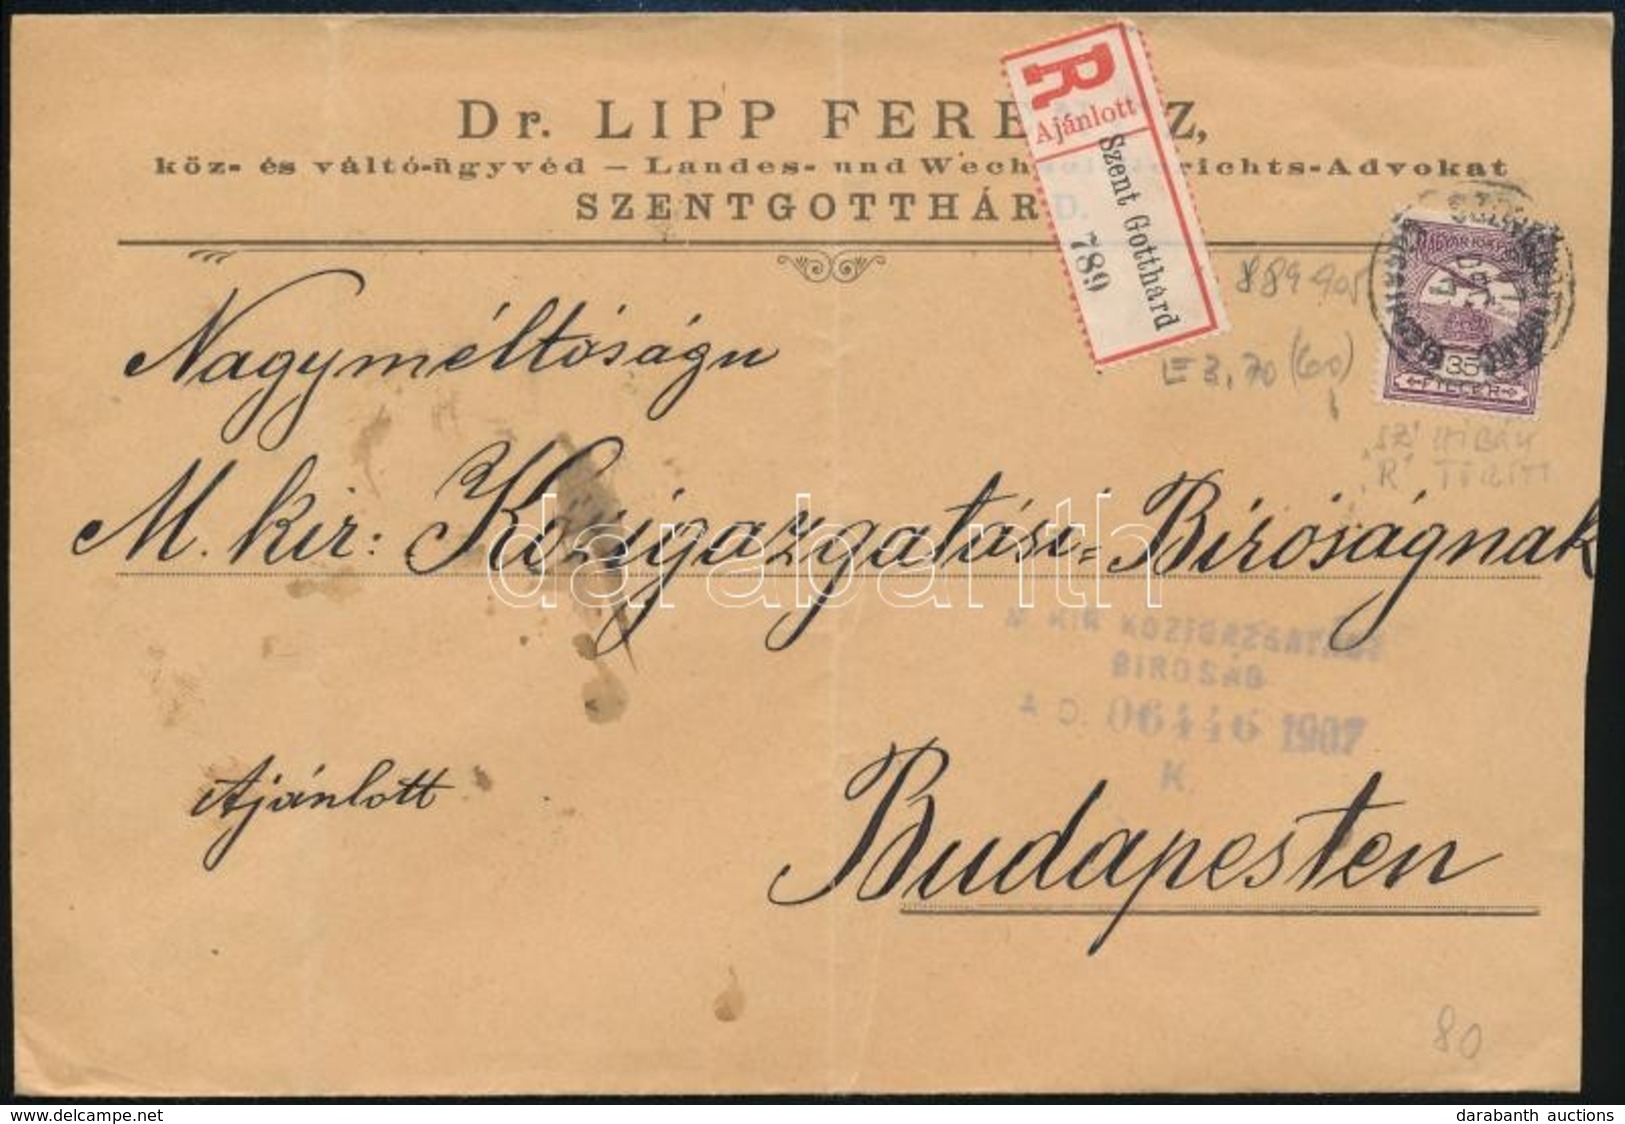 Dr. LIPP FERE Z,
köz- és váltó-ügyvéd — Landes- und Wech richts-Advokat
SZENTGOTTHÁRD.
R
Ajánlott
Szent Gotthárd
789
MAGYAR KIR. POSTA
35
FILLÉR
889 905
III 3,70 (60)
"SZ" HIBÁS
"R" TÖRÖTT
Nagyméltóságu
M. kir: Közigazgatási-Biróságnak
M. KIR. KÖZIGAZGATÁSI
BIRÓSÁG
06446 1907
K.
Ajánlott
Budapesten
80
darabanth
darabanth auctions
www.delcampe.net